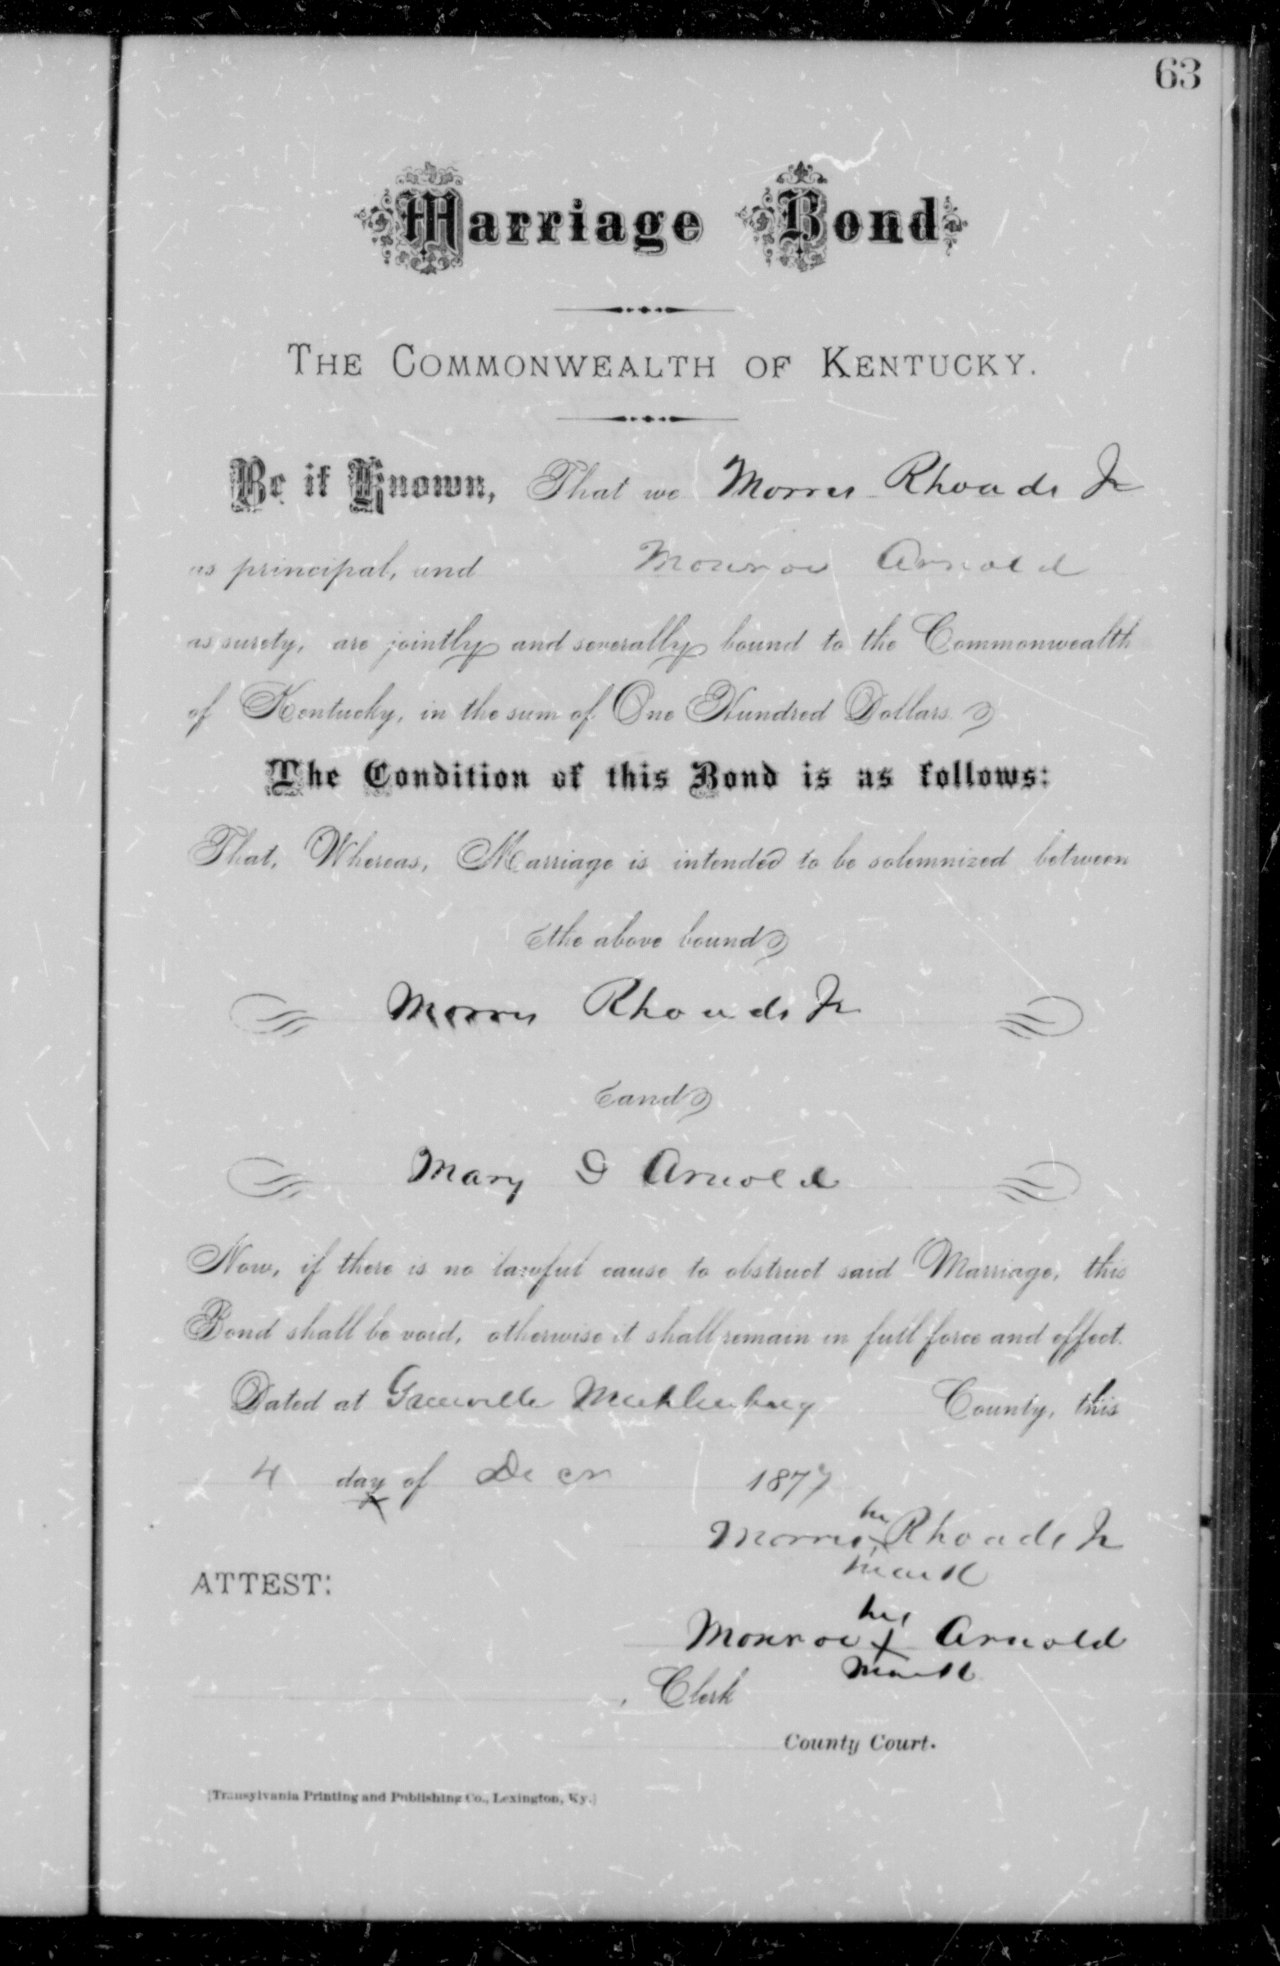 63
Marriage Bond
THE COMMONWEALTH OF KENTUCKY.
Be it Known, That we Morris Rhoads Jr
as principal, and Monroe Arnold
as surety, are jointly and severally bound to the Commonwealth
of Kentucky, in the sum of One Hundred Dollars.
The Condition of this Bond is as follows:
That, Whereas, Marriage is intended to be solemnized between
the above bound
Morris Rhoads Jr
and
Mary D Arnold
Now, if there is no lawful cause to obstruct said Marriage, this
Bond shall be void, otherwise it shall remain in full force and effect.
Dated at Greenville Muhlenburg County, this
4 day of Decr 1877
his
Morris x Rhoads Jr
mark
ATTEST:
his
Monroe x Arnold
mark
, Clerk
County Court.
[Transylvania Printing and Publishing Co., Lexington, Ky.]